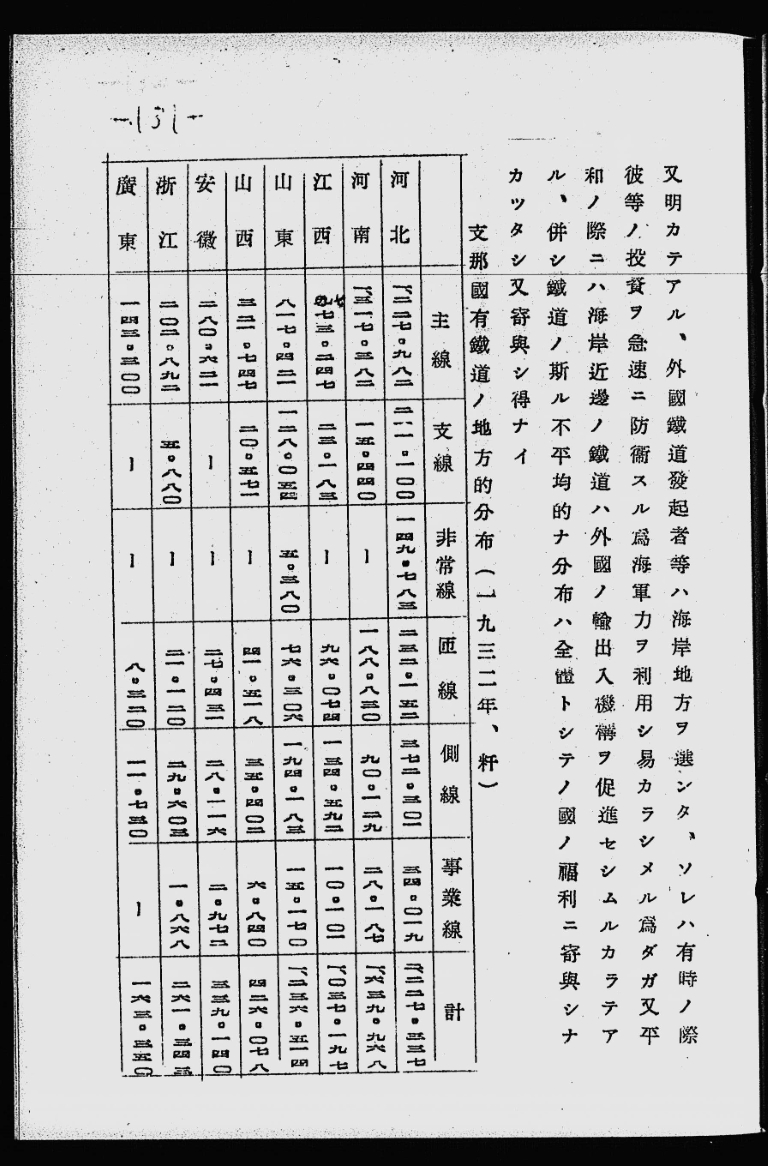 —131—
又明カテアル、外國鐵道發起者等ハ海岸地方ヲ選ンタ、ソレハ有時ノ際
彼等ノ投資ヲ急速ニ防衞スル爲海軍力ヲ利用シ易カラシメル爲ダガ又平
和ノ際ニハ海岸近邊ノ鐵道ハ外國ノ輸出入機構ヲ促進セシムルカラテア
ル、併シ鐵道ノ斯ル不平均的ナ分布ハ全體トシテノ國ノ福利ニ寄與シナ
カツタシ又寄與シ得ナイ
支那國有鐵道ノ地方的分布(一九三二年、粁)
主線 支線 非常線 匝線 側線 事業線 計
河北 一、二二七・九八二 二一一・一〇〇 一四九・七八三 二三二・一五二 三七二・三〇一 三四・〇一九 二、二二七・三三七
河南 一、三一七・三八二 一五・四四〇 ー 一八八・八三〇 九〇・一二九 二八・一八七 一、六三九・九六八
江西 七七三・二四七 二三・一八三 ー 九六・〇七四 一三四・五九二 一〇・一〇一 一、〇三七・一九七
山東 八一七・四二一 一二八・〇五四 五・三八〇 七六・三〇六 一九四・一八三 一五・一七〇 一、二三六・五一四
山西 三二一・七四七 二〇・五七一 ー 四一・五一八 三五・四〇二 六・八四〇 四二六・〇七八
安徽 二八〇・六二一 ー ー 二七・四三一 二八・一一六 二・九七二 三三九・一四〇
浙江 二〇二・八九二 五・八八〇 ー 二一・一二〇 二九・六〇三 一・八六八 二六一・三四三
廣東 一四三・三〇〇 ー ー 八・三二〇 一一・七三〇 ー 一六三・三五〇